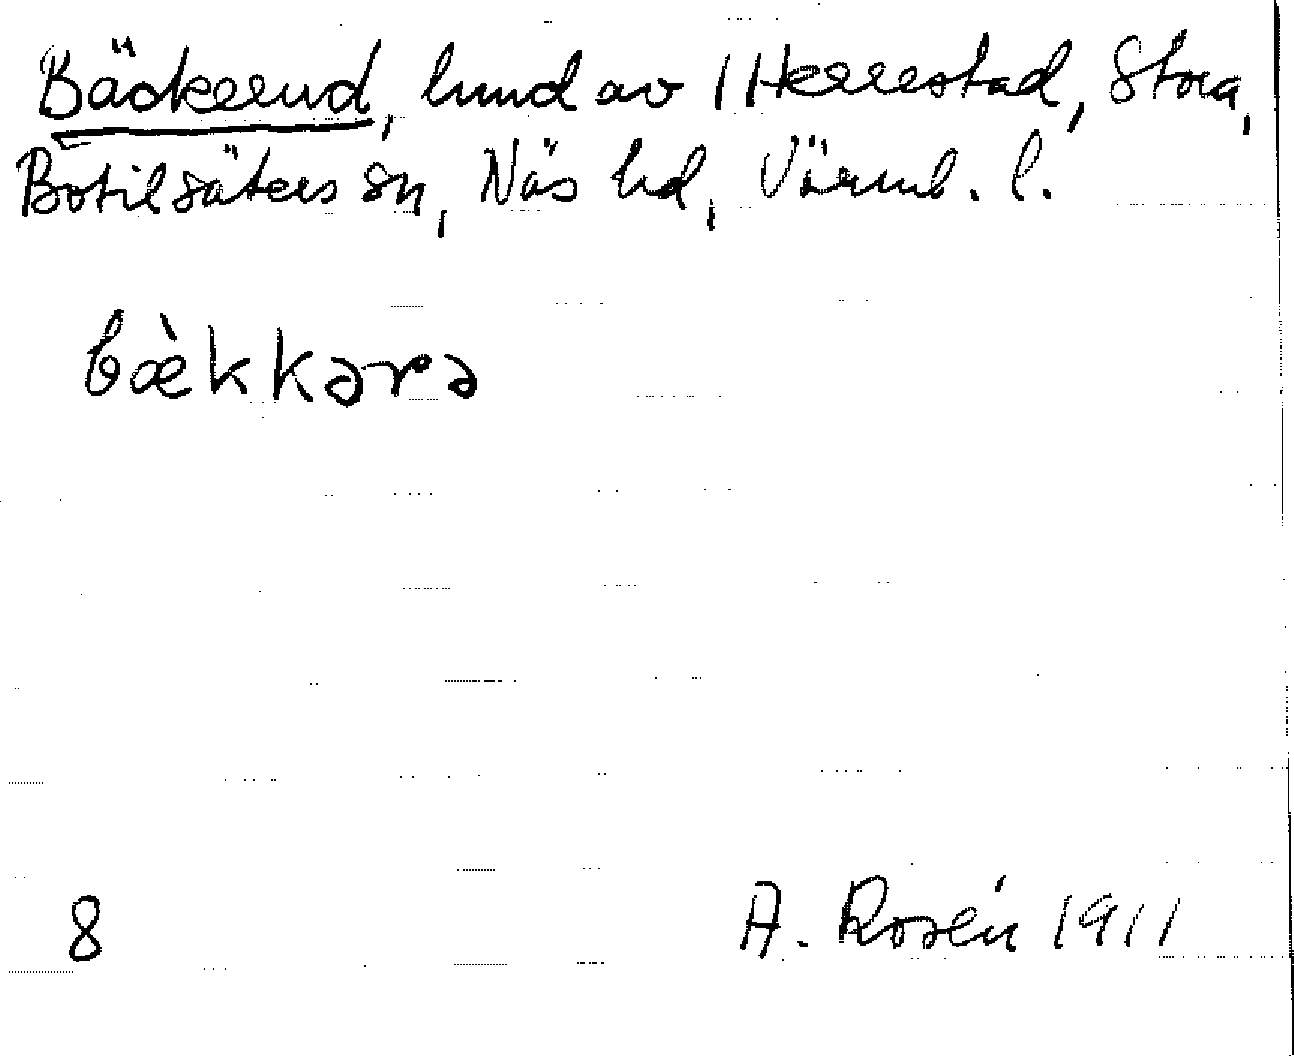 Bäckerud, lund av 1 Herrestad, Stora,
Botilsäters sn, Näs hd, Värml. l.
bæ̀kkərə
8
A. Rosén 1911